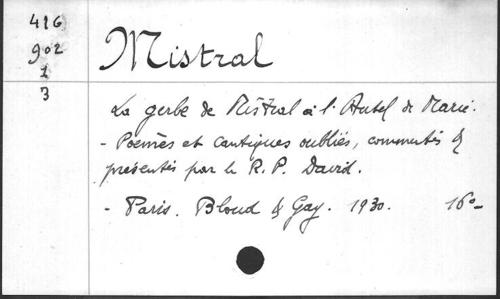 416
902
1
3
Mistral
La gerbe de Mistral à l'Autel de Marie.
- Poèmes et cantiques oubliés, commentés &
présentés par le R. P. David.
- Paris. Bloud & Gay. 1930. 16°-